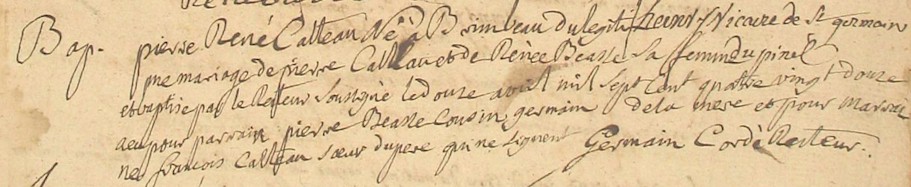 Bap. pierre René Catteau Né à Brimbeau du legiti heurs Vicaire de St germain
me mariage de pierre Catteau et de Renée Beasse sa femme du pinel
et baptisé par le Recteur soussigné le douze avril mil sept cent quattre vingt douze
a eu pour parrain pierre Beasse Cousin germain de la mere et pour marrai
ne françois Catteau sœur du pere qui ne signent Germain Cordé Recteur.